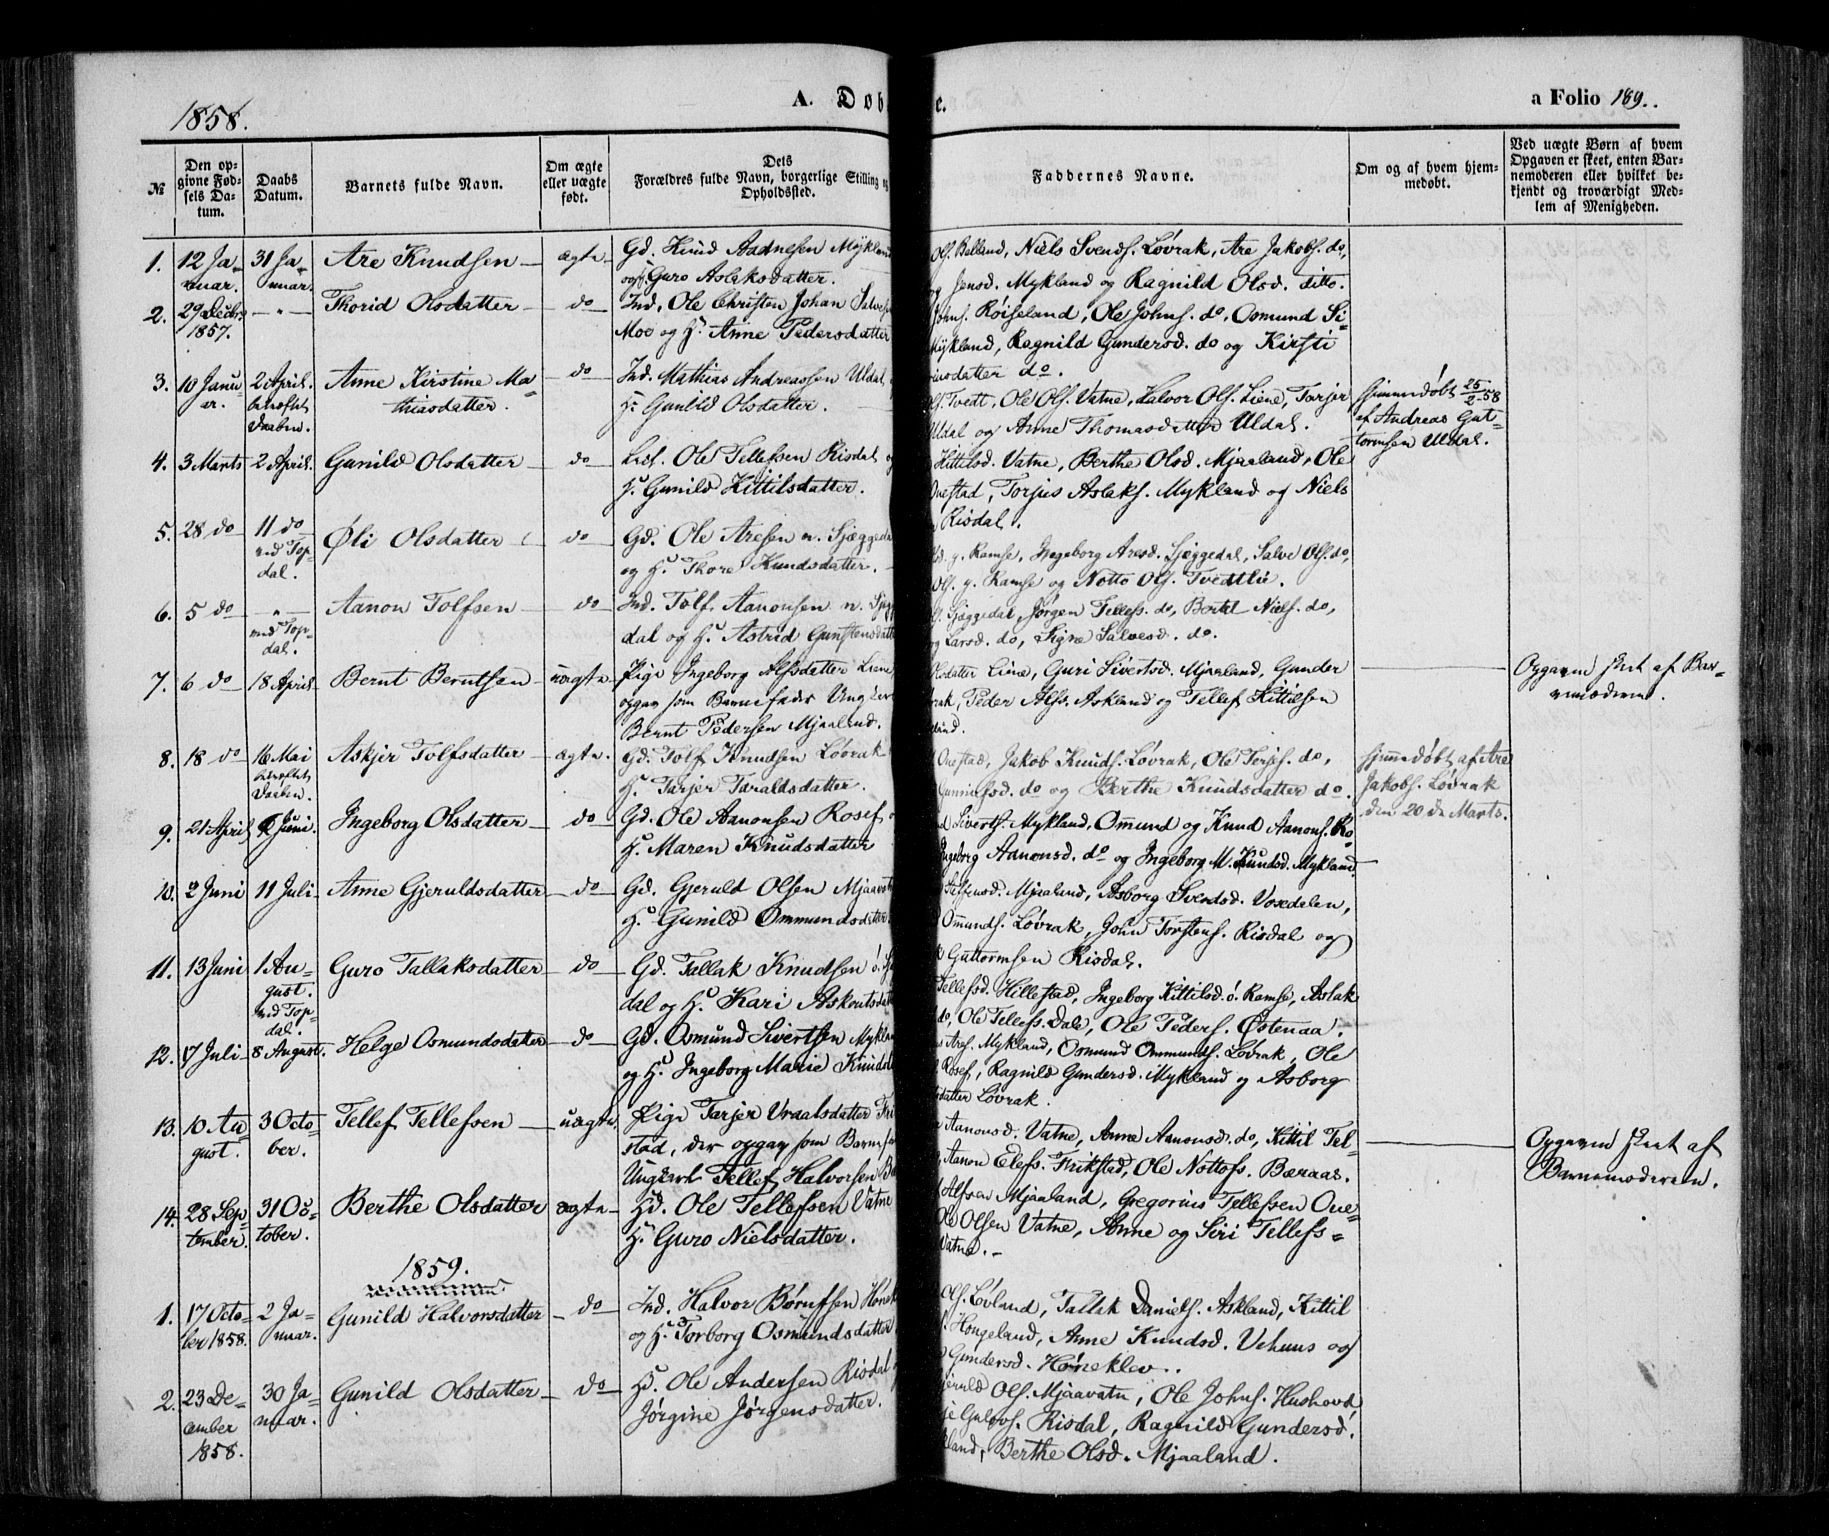 1858.
A. Dob
e.
a Folio 189..
№
Den op-
givne Fød-
sels Da-
tum.
Daabs
Datum.
Barnets fulde Navn.
Om ægte
eller uægte
født.
Dets
Forældres fulde Navn, borgerlige Stilling og
Opholdssted.
Faddernes Navne.
Om og af hvem hjem-
medøbt.
Ved uægte Børn af hvem
Opgaven er skeet, enten Bar-
nemoderen eller hvilket be-
kjendt og troværdigt Med-
lem af Menigheden.
1. 12 Ja- 31 Ja- Are Knudsen — ægte Gd. Knud Aadnesen Mykland
nuar. nuar. og Guro Aslaksdatter.
Ols. Belland, Niels Svends. Løvrak, Are Jakobs. do,
og Jensd. Mykland og Ragnild Olsd. ditto.
2. 29 Decbr. —"— Thorid Olsdatter — do Ind. Ole Christen Johan Salves
1857. Moe og H. Anne Pedersdatter
Johns. Røiseland, Ole Johns. do, Osmund Si-
Mykland, Ragnild Gundersd. do og Kirsti
datter do.
3. 10 Janu- 2 April. Anne Kirstine Ma- do Ind. Mathias Andreassen Uldal
ar. bekræftet thiasdatter. H. Gunild Olsdatter.
Daaben.
Ols. Tvedt, Ole Ols. Vatne, Halvor Ols. Liene, Tarjer
Uldal og Anne Thomasdatter Uldal.
Hjemmedøbt 25/2 58
af Andreas Gut-
tormsen Uldal.
4. 3 Marts 2 April. Gunild Olsdatter — do Ole Tellefsen Risdal og
H. Gunild Kittilsdatter.
Kittilsd. Vatne, Berthe Olsd. Mjaaland, Ole
Ovestad, Torjus Aslaks. Mykland og Niels
Risdal.
5. 28 do 11 do Øli Olsdatter do Gd. Ole Aresen n. Sjæggeda
ved Top- og H. Thore Knudsdatter.
dal.
y. Ramse, Ingeborg Aresd. Sjæggedal, Salve Ols. do,
Ols. y. Ramse og Notto Ols. Tvedtlie.
6. 5 do —"— Aanon Tolfsen — do Ind. Tolf Aanonsen n. Sjegg
ved Top- dal og H. Astrid Gunstensdatte
dal.
Sjæggedal, Jørgen Tellefs. do, Bertel Niels. do,
Larsd. do, Signe Salvesd. do.
7. 6 do 18 April Bernt Berntsen — uægte Pige Ingeborg Alfsdatter Liene
opgav som Barnefader Ungkar
Bernt Pedersen Mjaaland.
datter Liene, Guri Sivertsd. Mjaaland, Gunder
rak, Peder Alfs. Askland og Tellef Kittilsen
land.
Opgaven skeet af Bar-
nemoderen.
8. 18 do 16 Mai Askjer Tolfsdatter — ægte. Gd. Tolf Knudsen Løvrak
bekræftet H. Tarjer Taraldsdatter.
Daaben.
Ovestad, Jakob Knuds. Løvrak, Ole Torjs. do,
Gunnulfsd. do og Berthe Knudsdatter do.
Hjemmedøbt af Are
Jakobs. Løvrak
den 20de Marts.
9. 21 April Juni. Ingeborg Olsdatter — do Gd. Ole Aanonsen Rosef
H. Maren Knudsdatter
Siverts. Mykland, Omund og Knud Aanons. Ro-
Ingeborg Aanonsd. do og Ingeborg M. Knudsd. Mykland.
10. 2 Juni 11 Juli Anne Gjeruldsdatter — do Gd. Gjeruld Olsen Mjaavatn
H. Gunild Ommundsdatter
Steffensd. Mjaaland, Asborg Svendsd. Vosedalen,
Omunds. Løvrak, John Torstens. Risdal og
Guttormsen Risdal.
11. 13 Juni 1 Au- Guro Tallaksdatter — do Gd. Tallak Knudsen ó. Sj
gust. dal og H. Kari Askeuts
ved Top-
dal.
Tellefsd. Hillestad, Ingeborg Kittilsd. ó. Ramse, Aslak
do, Ole Tellefs. Dale, Ole Peders. Østenaa.
12. 17 Juli 8 August. Helge Osmundsdatter — do Gd. Osmund Sivertsen Mykla
og H. Ingeborg Marie Knuds
Ares. Mykland, Osmund Ommunds. Løvrak, Ole
Rosef, Ragnild Gundersd. Mykland og Asborg
datter Løvrak.
13. 10 Au- 3 Octo- Tellef Tellefsen — uægte. Pige Tarjer Vraalsdatter Fri
gust. ber. stad, der opgav som Barnefa
Ungkarl Tellef Halvorsen B
Aanonsd. Vatne, Anne Aanonsd. do, Kittil Tel-
Aanon Elefs. Frikstad, Ole Nottofs. Bæraas.
Opgaven skeet af
Barnemoderen.
14. 28 Sep- 31 Oc- Berthe Olsdatter ægte Hd. Ole Tellefsen Vatne
tember. tober. H. Guro Nielsdatter.
Alfsen Mjaaland, Gregorius Tellefsen Ove-
Ole Olsen Vatne, Anne og Siri Tellefs-
Vatne.
1859.
1. 17 Octo- 2 Ja- Gunild Halvorsdatter — do Ind. Halvor Børufsen Hønek
ber 1858. nuar. og H. Torborg Osmundsdatter
Ols. Løvland, Tallak Daniels. Askland, Kittil
Hougeland, Anne Knudsd. Vehuus og
Gundersd. Høneklev.
2. 23 De- 30 Ja- Gunild Olsdatter — do Hd. Ole Andersen Risdal
cember nuar. Jørgine Jørgensdatter.
1858.
Gjeruld Ols. Mjaavatn, Ole Johns. Hushovd,
Risdal, Ragnild Gundersd.
land, Berthe Olsd. Mjaaland.